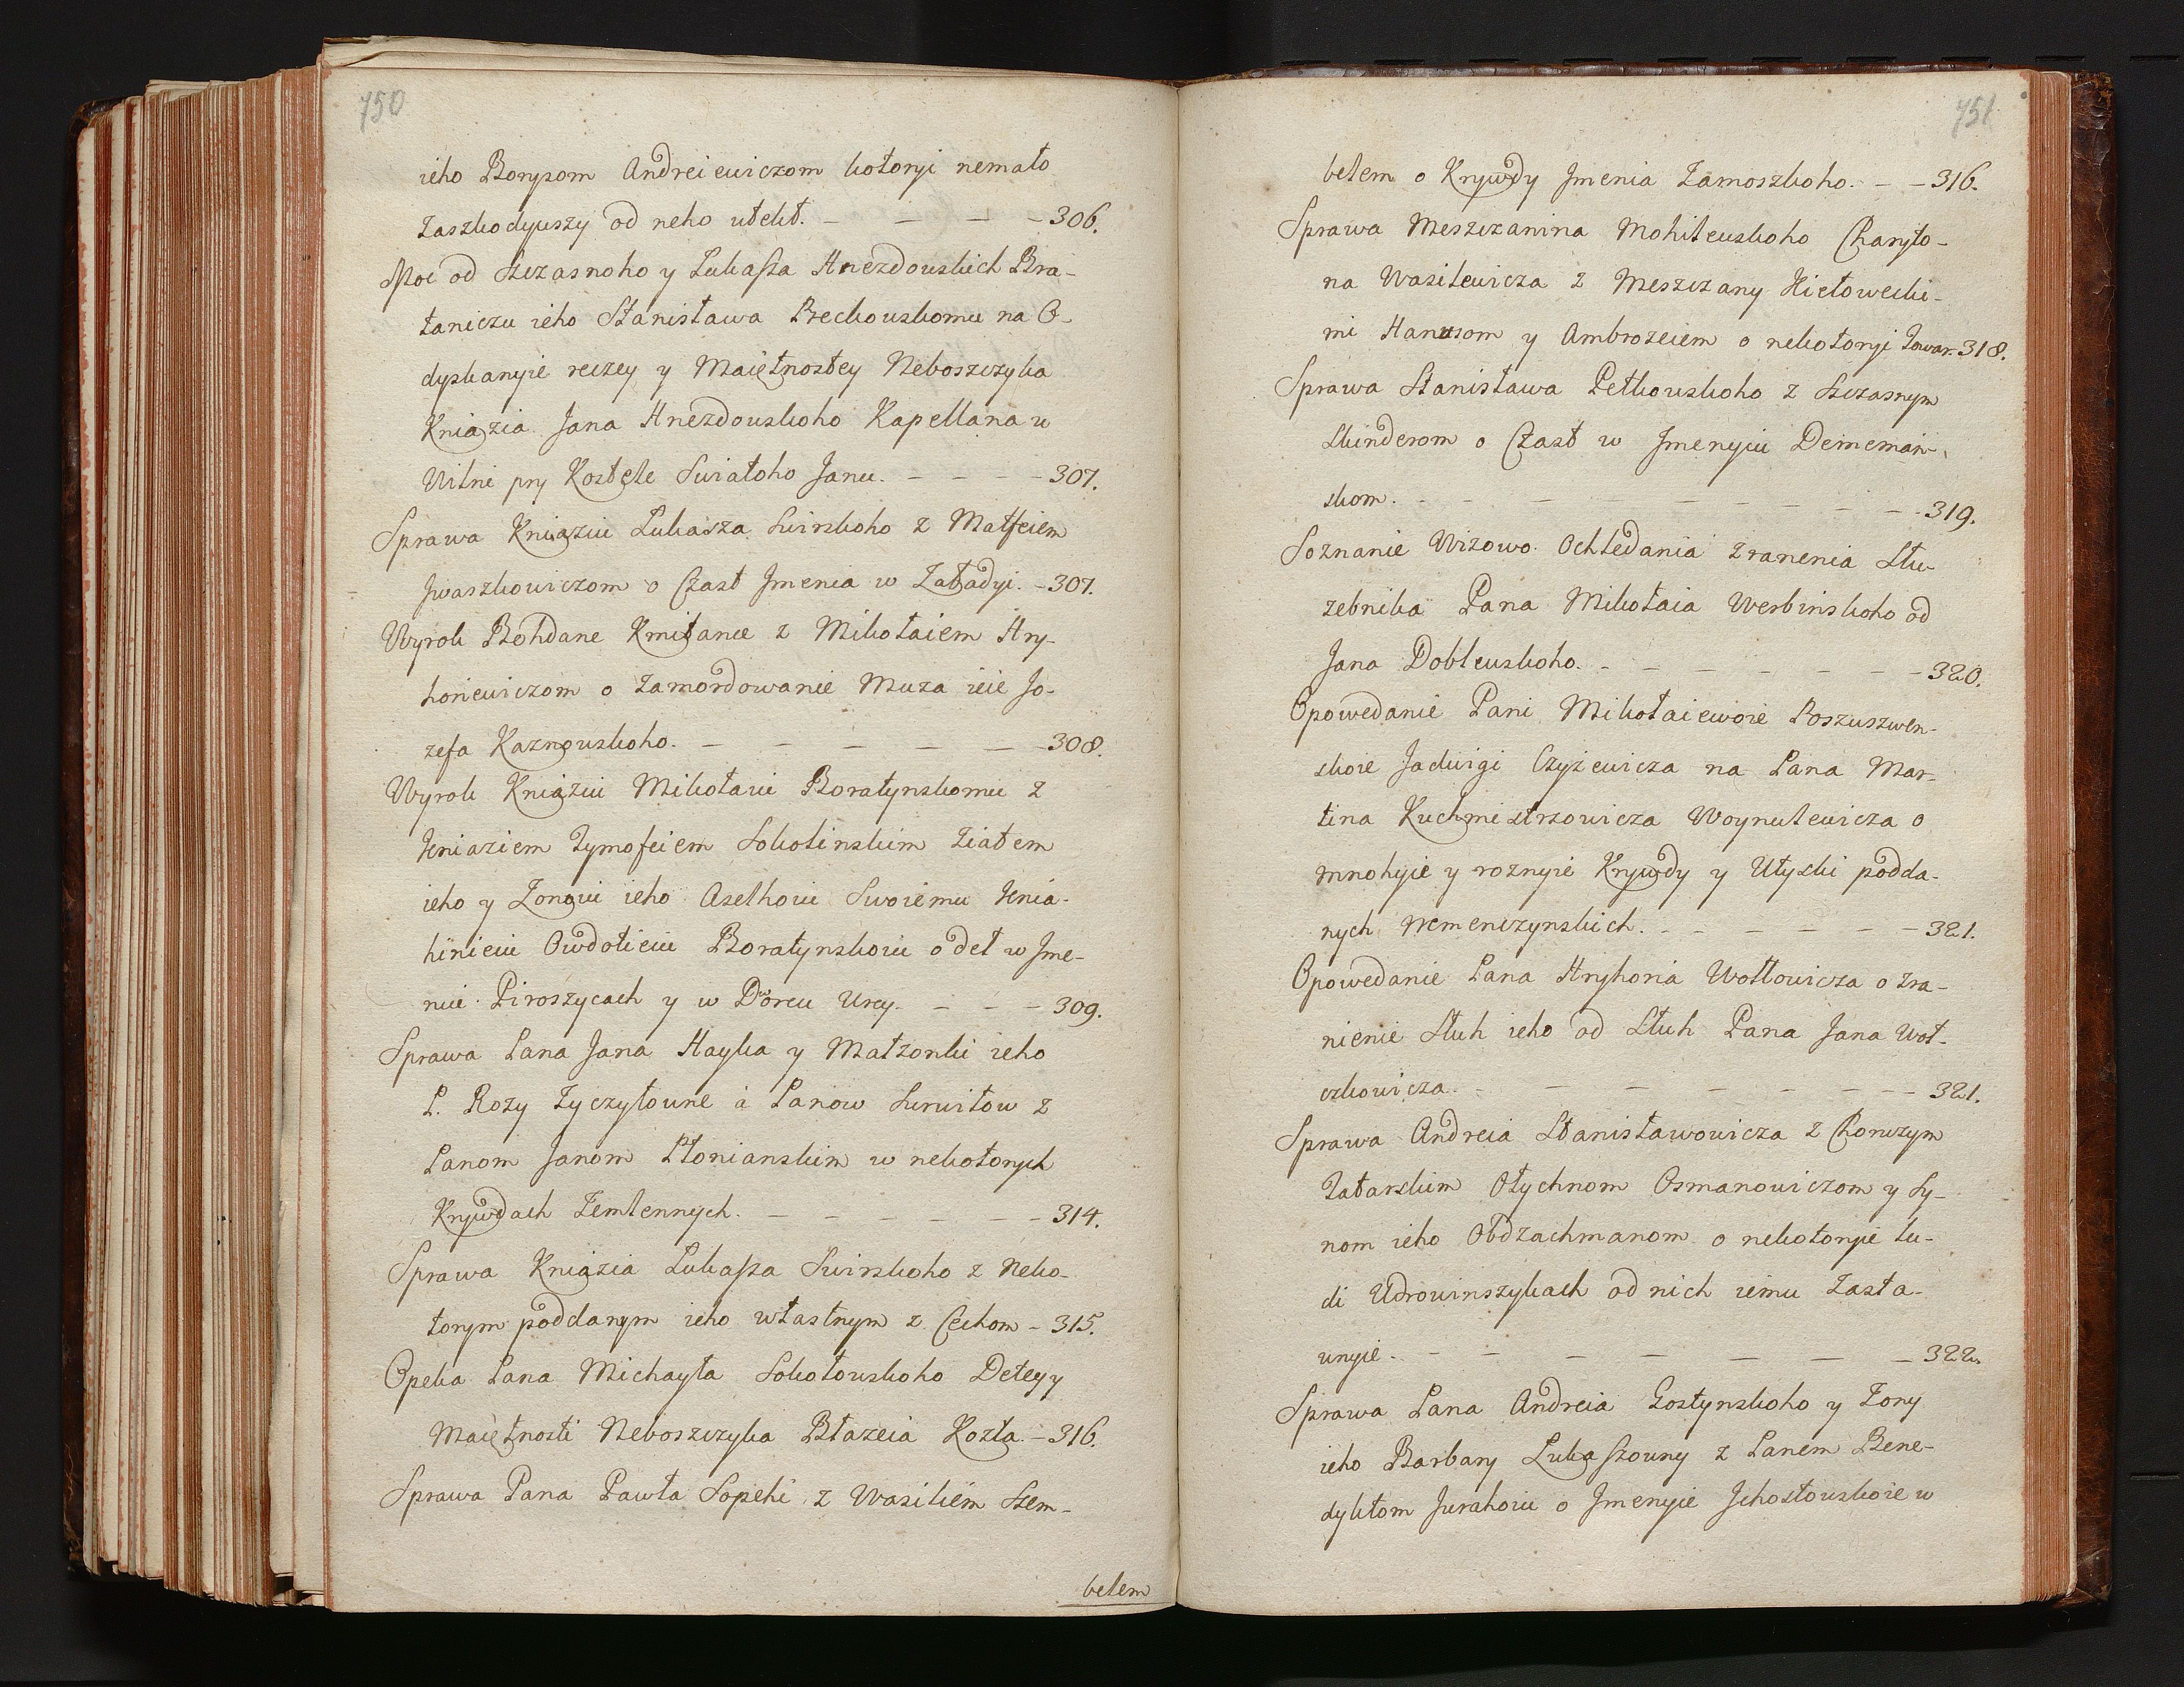 750
ieho Borysom Andreiewiczom kotoryi nemało
Zaszkodywszy od neho utekł. — — — — 306.
Moc od Szczasnoho y Lukasza Hnezdouskich Bra-
taniczu ieho Stanisława Preckouskomu na O-
dyskanyie reczey y Maiętnostey Neboszczyka
Kniązia Jana Hnezdouskoho Kapellana u
Wilni pry Kostele Swiatoho Jana. — — — — 307.
Sprawa Kniaziu Lukasza Swirskoho z Matfeiem
Jwaszkowiczom o Czast Jmenia w Załadyi. — 307.
Wyrok Bohdane Kmitance z Mikołaiem Hry-
horiewiczom o zamordowanie Muza ieie Jo-
zefa Kaznouskoho. — — — — — 308.
Wyrok Kniąziu Mikołaiu Boratynskomu z
Kniaziem Tymofeiem Sokolinskim Ziatem
ieho y Zonoiu ieho a Selhoiu Swoiemu Knia-
hinieiu Owdotieiu Boratynskoiu o deł w Jme-
niu Piroszycach y w Dorcu Urcy. — — — 309.
Sprawa Pana Jana Hayka y Małzonki ieho
P. Rozy Zyczyłoune a Panow Surwiłow z
Panom Janom Płonianskim w nekotorych
Krywdach Zemlennych. — — — — — 314.
Sprawa Kniązia Lukasza Swirskoho z Neko-
torym poddanym ieho własnym z Cechom — 315.
Opeka Pana Michayła Sokołouskoho Detey y
Maiętnosti Neboszczyka Błazeia Kozła. — 316.
Sprawa Pana Pawła Sopehi z Wasilièm Szem-
betem
751
betem o Krywdy Jmenia Zamoszkoho. — — 316.
Sprawa Meszczanina Mohileuskoho Charyto-
na Wasilewicza z Meszczany Kietowecki-
mi Hanusom y Ambrozeiem o nekotoryi Towar. 318.
Sprawa Stanisława Petkouskoho z Szczasnym
Skinderom o Czast w Jmenyiu Deineman-
skom. — — — — — — — 319.
Soznanie Wizowo Ochledania zranenia Słu-
zebnika Pana Mikołaia Werbinskoho od
Jana Dobleuskoho. — — — — — — 320.
Opowedanie Pani Mikołaiewoie Poszuszwen-
skoie Jadwigi Czyżewicza na Pana Mar-
tina Kuchmistrzowicza Woynutewicza o
mnohyie y roznyie Krywdy y Utyski podda-
nych Nemenczynskich. — — — — — 321.
Opowedanie Pana Hryhoria Wołłowicza o zra-
nienie Słuh ieho od Słuh Pana Jana Woł-
czkowicza. — — — — — — 321.
Sprawa Andreia Stanisławowicza z Choruzym
Tatarskim Ołychnom Osmanowiczom y Sy-
nom ieho Obdzachmanom o nekotoryie lu-
di Udrowinszykach od nich iemu Zasta-
unyie. — — — — — — — 322.
Sprawa Pana Andreia Gostynskoho y Zony
ieho Barbary Lukaszouny z Panem Bene-
dyktom Jurahoiu o Jmenyie Jchostouskoie w